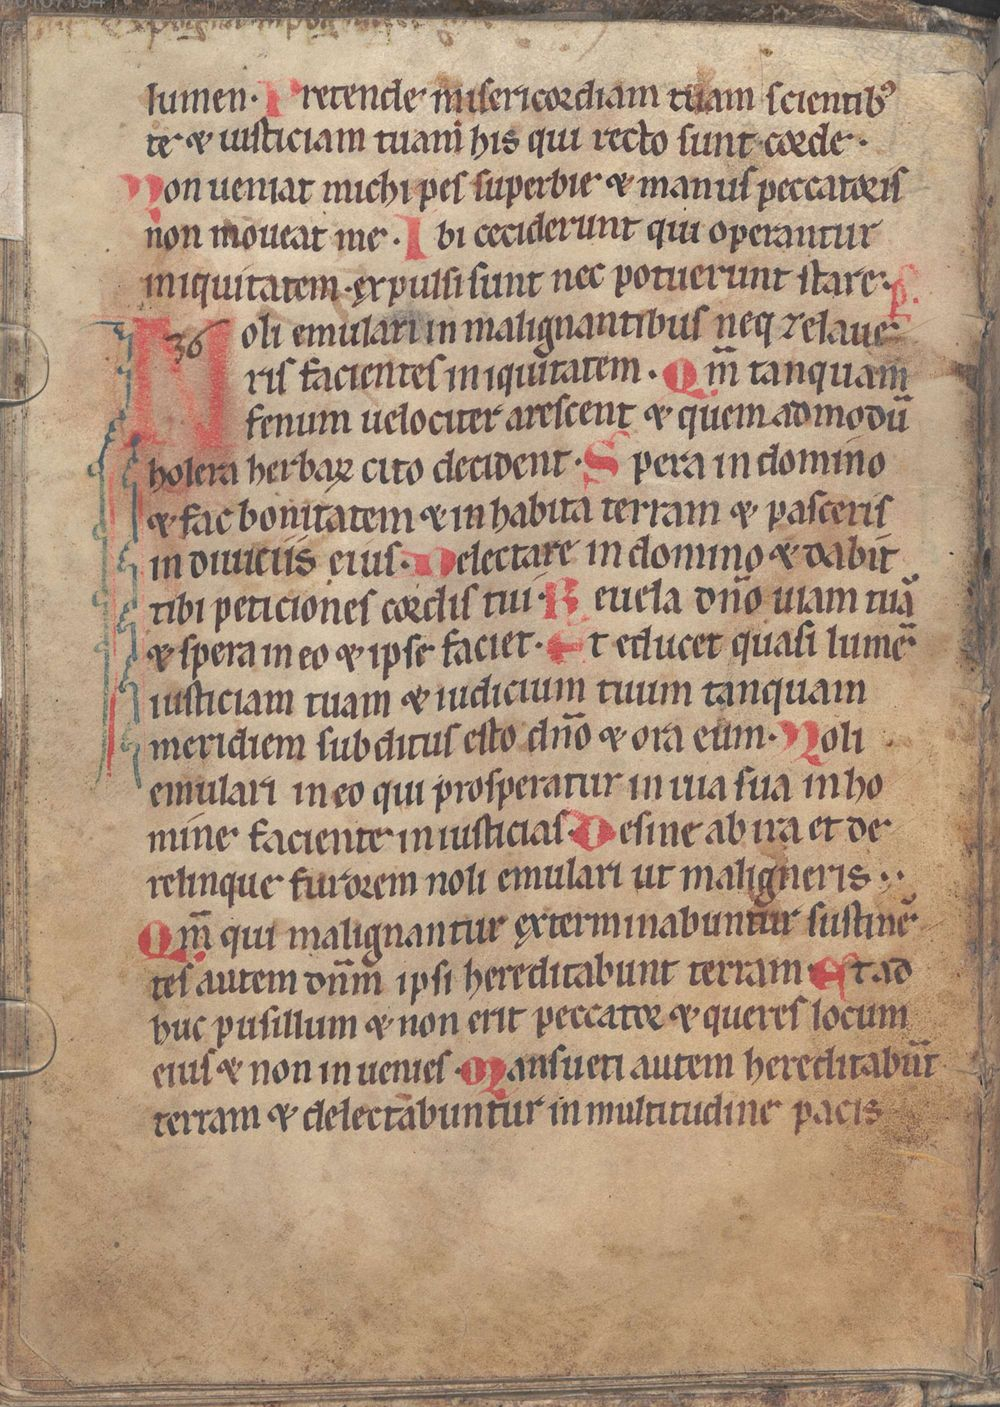 lumen. Pretende misericordiam tuam scientib9
te & iusticiam tuam his qui recto sunt corde.
Non ueniat michi pes superbie & manus peccatoris
non moueat me. Ibi ceciderunt qui operantur
iniquitatem. expulsi sunt nec potuerunt stare. p̄.
36
Noli emulari in malignantibus neq zelaue
ris facientes iniquitatem. Qm̄ tanquam
fenum uelociter arescent & quem admodū
holera herbaꝝ cito decident. Spera in domino
& fac bonitatem & inhabita terram & pasceris
in diuiciis eius. Delectare in domino & dabit
tibi peticiones cordis tui. Reuela dn̄o uiam tuā
& spera in eo & ipse faciet. Et educet quasi lumē
iusticiam tuam & iudicium tuum tanquam
meridiem subditus esto dn̄o & ora eum. Noli
emulari in eo qui prosperatur in uia sua in ho
mine faciente iniusticias. Desine ab ira et de
relinque furorem noli emulari ut maligneris..
Qm̄ qui malignantur exterminabuntur sustinē
tes autem dn̄m ipsi hereditabunt terram. Et ad
huc pusillum & non erit peccator & queres locum
eius & non inuenies. Mansueti autem hereditabūt
terram & delectabuntur in multitudine pacis